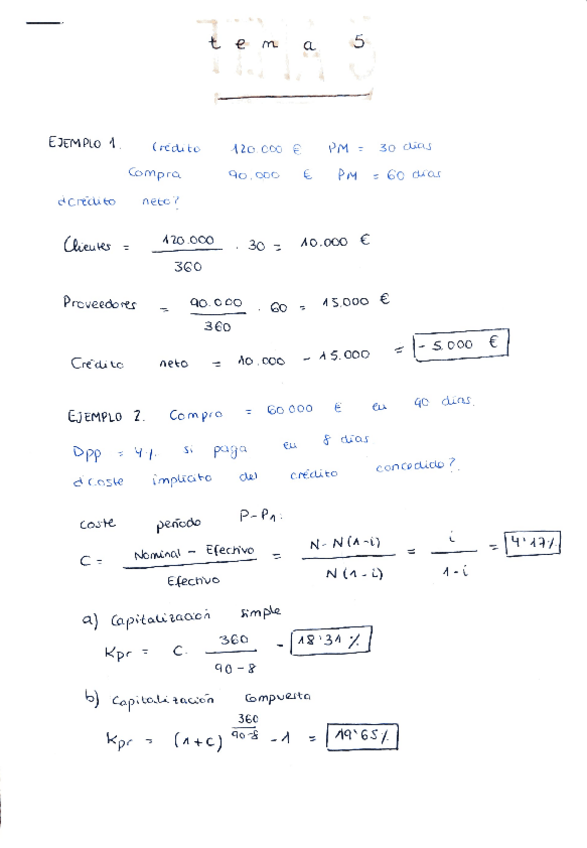 tema 5
EJEMPLO 1. Crédito 120.000 € PM = 30 días
Compra 90.000 € PM = 60 días
¿Crédito neto?
Clientes = 120.000 / 360 · 30 = 10.000 €
Proveedores = 90.000 / 360 · 60 = 15.000 €
Crédito neto = 10.000 - 15.000 = - 5.000 €
EJEMPLO 2. Compra = 60000 € en 90 días.
Dpp = 4% si paga en 8 días
¿Coste implícito del crédito concedido?
coste período P-P1:
C = Nominal - Efectivo / Efectivo = N - N(1-i) / N(1-i) = i / 1-i = 4'17%
a) Capitalización simple
Kpr = C. 360 / 90-8 = 18'31%
b) Capitalización compuesta
Kpr = (1+C)^(360 / 90-8) - 1 = 19'65%